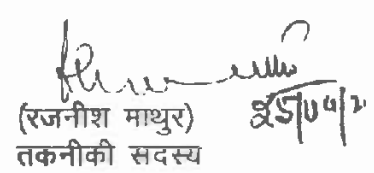 (रजनीश माथुर)
तकनीकी सदस्य